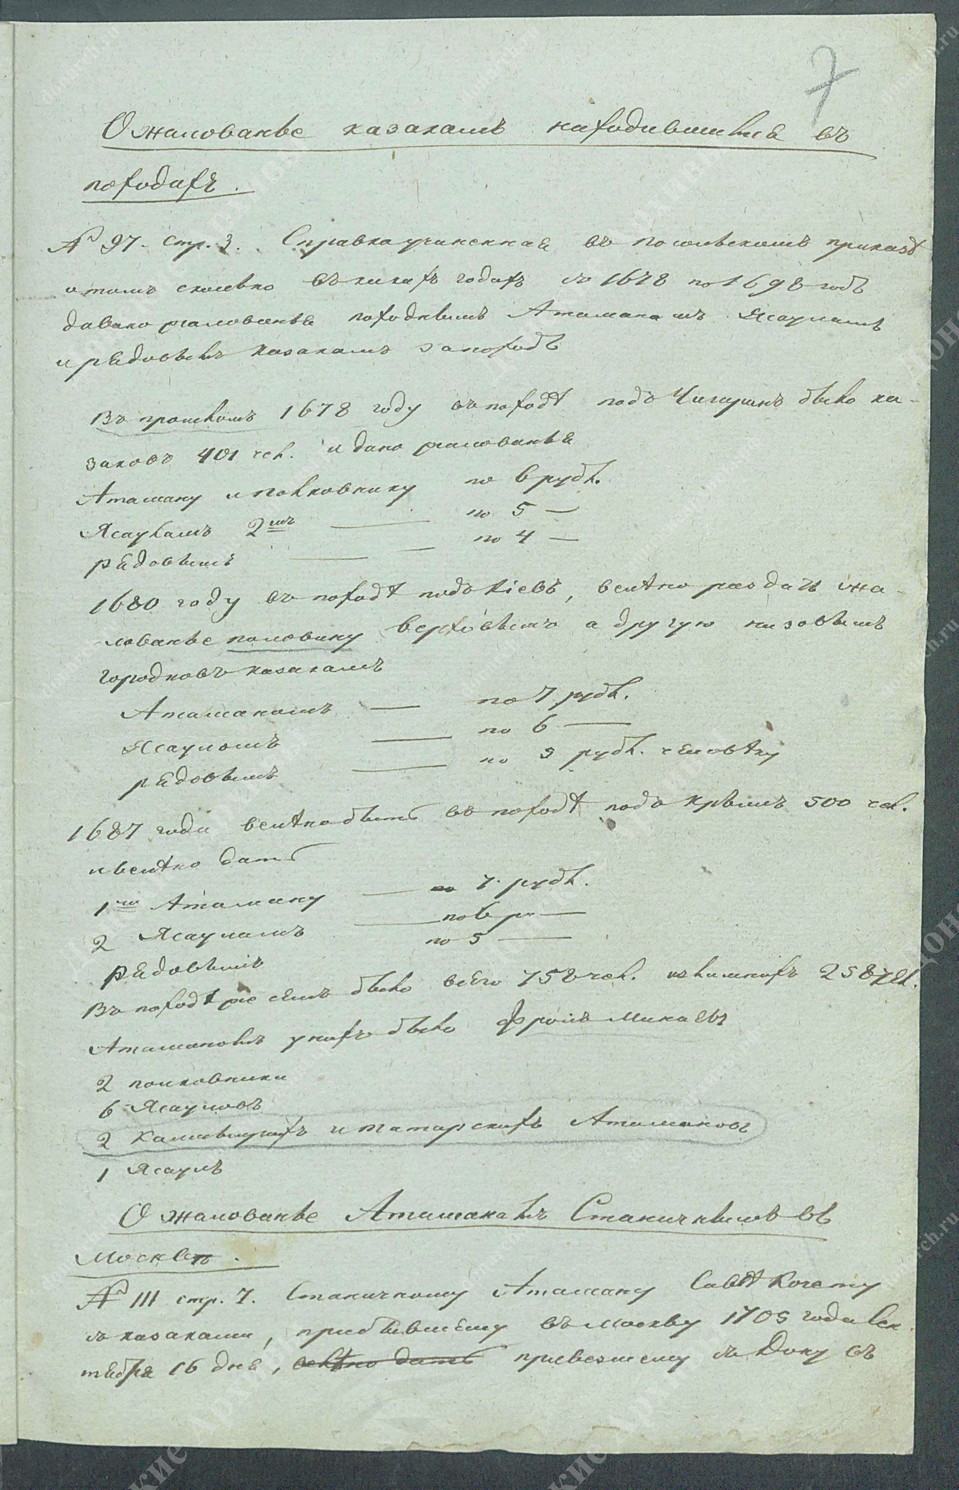 7
О жалованье казакамъ находившимся въ
походахъ.
№ 97. стр. 3. Справка учиненная въ посольскомъ приказѣ
о томъ сколько въ какихъ годахъ съ 1678 по 1698 годъ
давано жалованья походнымъ Атаманамъ Ясауламъ
и рядовымъ казакамъ за походъ
Въ прошломъ 1678 году въ походѣ подъ Чигиринъ было ка-
заковъ 401 чел. и дано жалованья
Атаману и полковнику по 6 рубл.
Ясауламъ 2мъ — по 5 —
рядовымъ — по 4 —
1680 году въ походѣ подъ Кіевъ, велѣно раздать жа-
лованье половину верховымъ а другую низовымъ
городковъ казакамъ
Атаманамъ — по 7 рубл.
Ясауломъ — по 6 —
рядовымъ — по 5 рубл. человѣку
1687 года велѣно быть въ походѣ подъ Крымъ 500 чел.
и велѣно дать
1му Атаману — по 7. рубл.
2 Ясауламъ — по 6 р —
рядовымъ по 5 —
Въ походѣ же семъ было всего 758 чел. калмыкъ 258 чел.
Атаманомъ у нихъ былъ Фролъ Минаевъ
2 полковники
6 Ясауловъ
2 Калмыцкихъ и татарскихъ Атамановъ
1 Ясаулъ
О жалованье Атаманамъ Станичнымъ въ
Москвѣ.
№ 111 стр. 7. Станичному Атаману Савѣ Кочету
съ казаками, прибывшему въ Москву 1705 года Сен
тября 16 дня, велѣно дать привезшему съ Дону съ